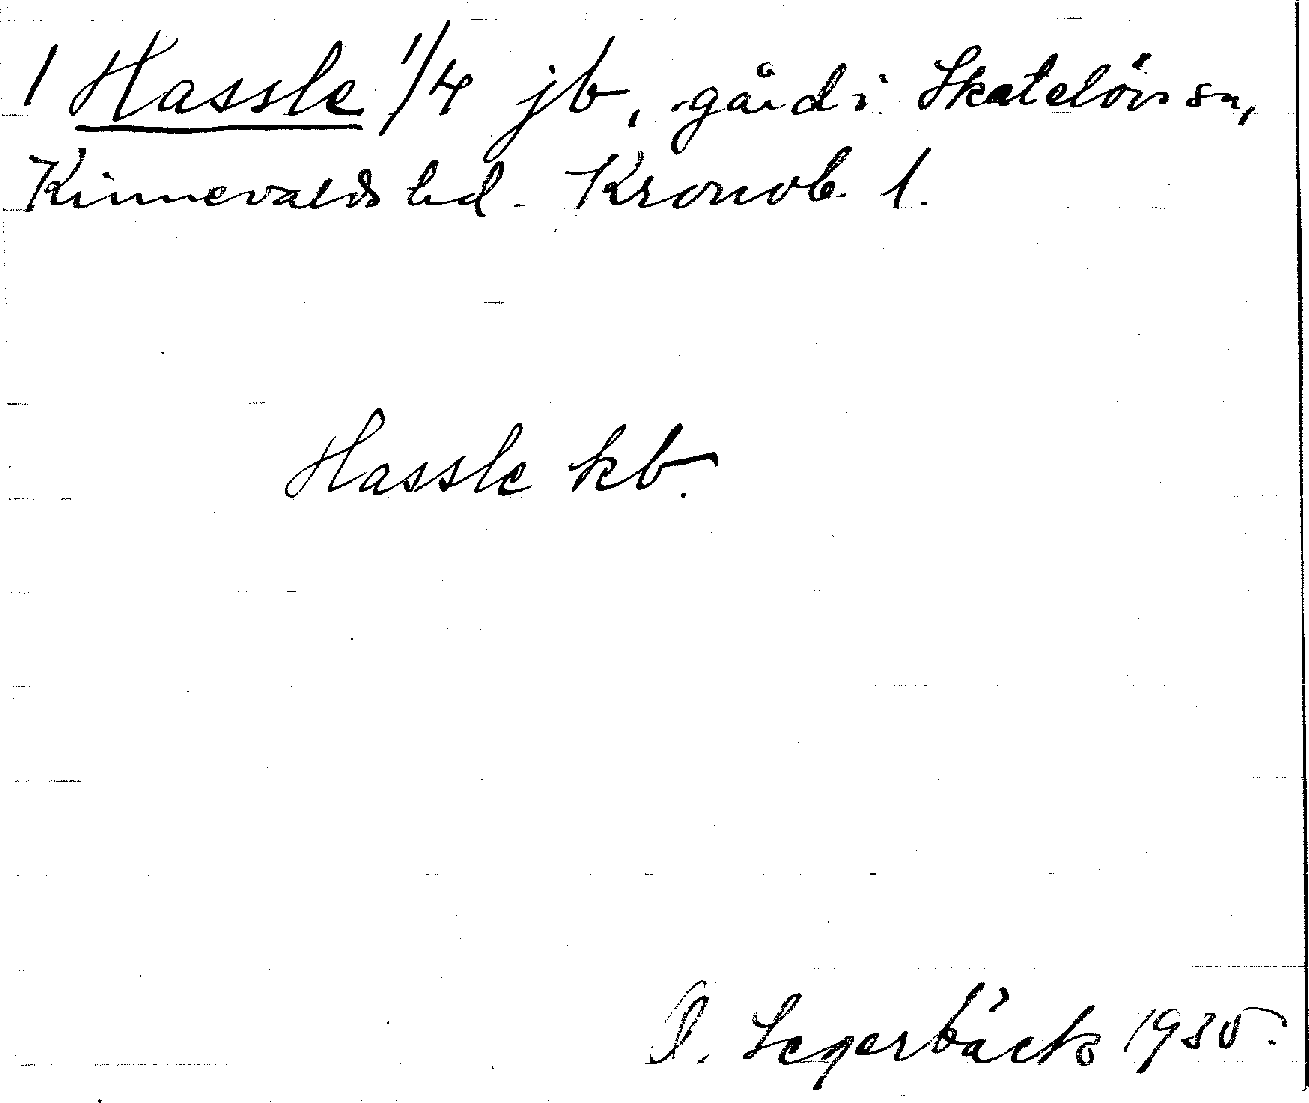 1 Hassle 1/4 jb, gård i Skatelövs sn,
Kinnevalds hd. Kronob. l.
Hassle kb.
Segerbäck 1935.